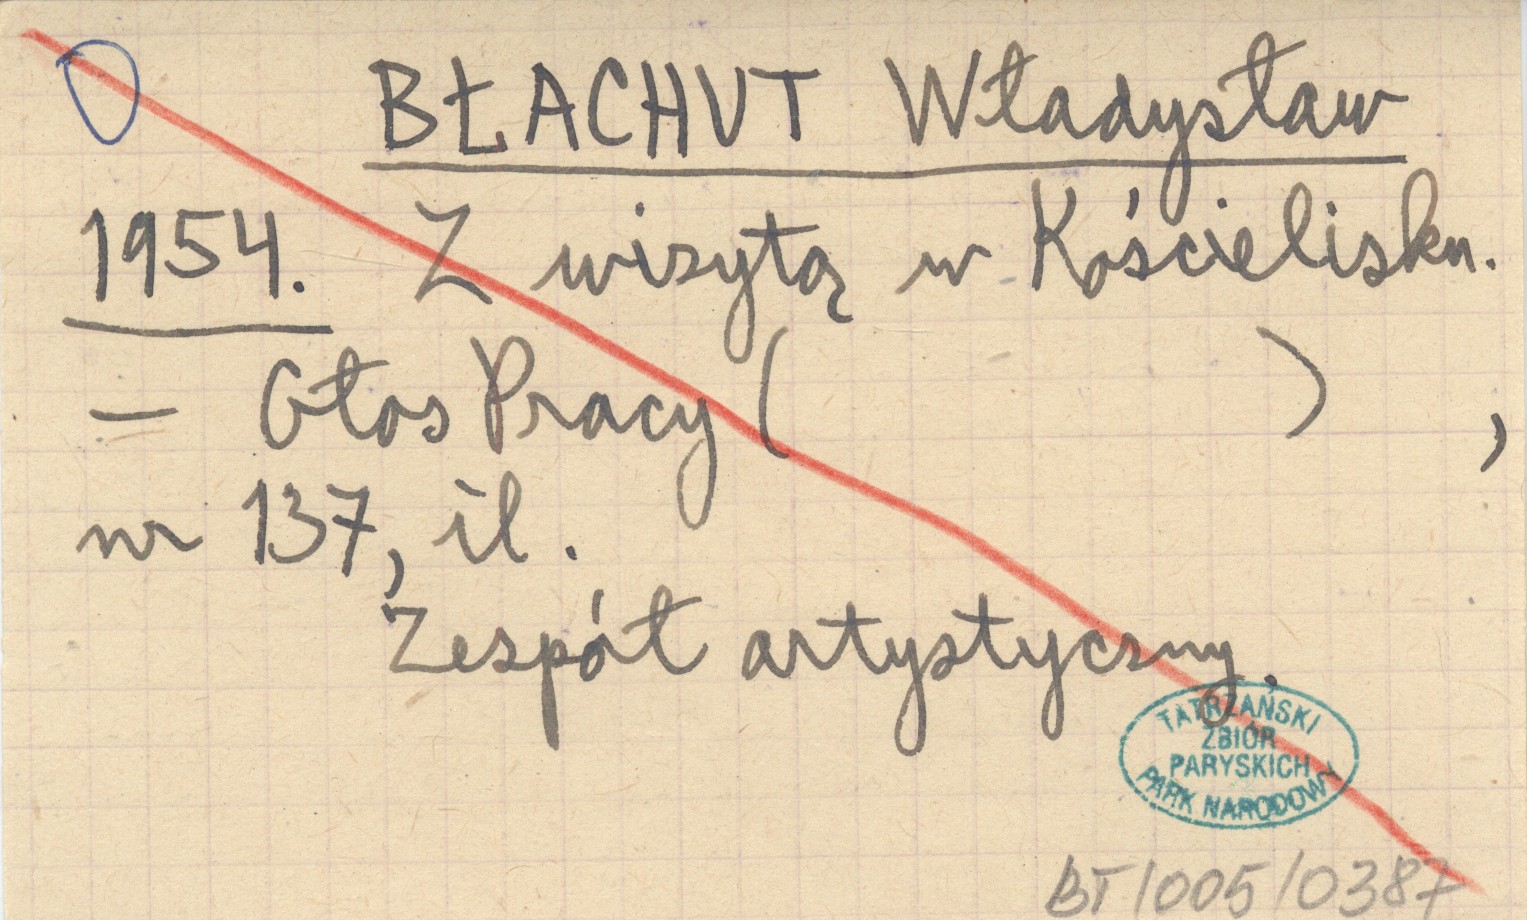 BŁACHUT Władysław
1954. Z wizytą w Kościelisku.
— Głos Pracy ( ) ,
nr 137, il.
Zespół artystyczny.
TATRZAŃSKI
ZBIÓR
PARYSKICH
PARK NARODOWY
BT/005/0387